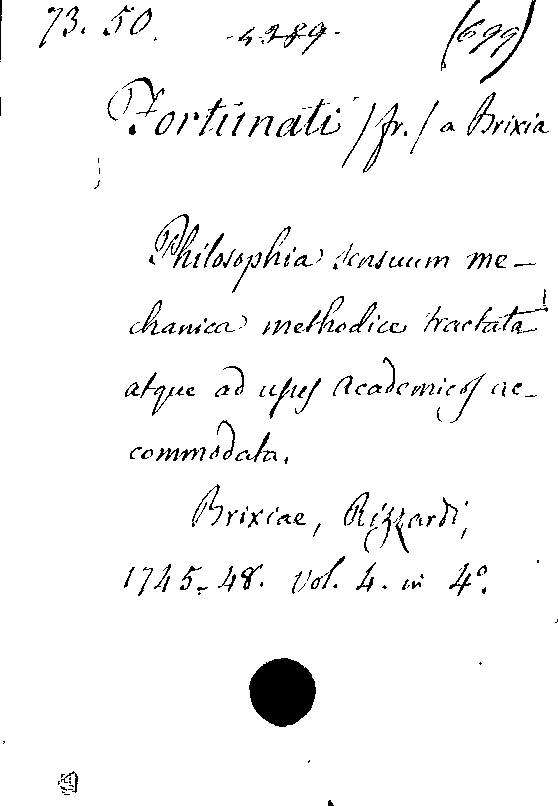 73. 50. -4289- (699)
Fortunati /fr./ a Brixia
Philosophia sensuum me-
chanica methodice tractata
atque ad usus academicos ac-
commodata.
Brixiae, Rizzardi,
1745-48. vol. 4. in 4º.